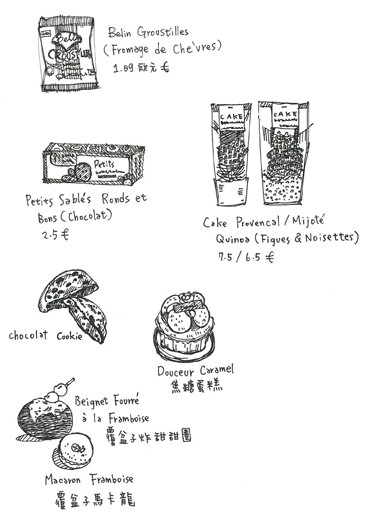 Belin Groustilles
(Fromage de Che'vres)
1.09 歐元 €
CAKE
CAKE
Petits
Petits Sablés Ronds et
Bons (Chocolat)
2.5 €
Cake Provencal / Mijoté
Quinoa (Figues & Noisettes)
7.5 / 6.5 €
chocolat Cookie
Douceur Caramel
焦糖蛋糕
Beignet Fourré
à la Framboise
覆盆子炸甜甜圈
Macaron Framboise
覆盆子馬卡龍